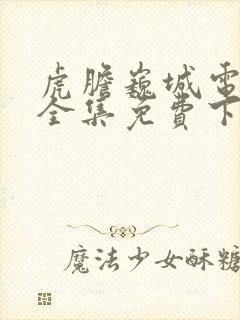 虎膽巍城電
全集免費下
魔法少女酥糖